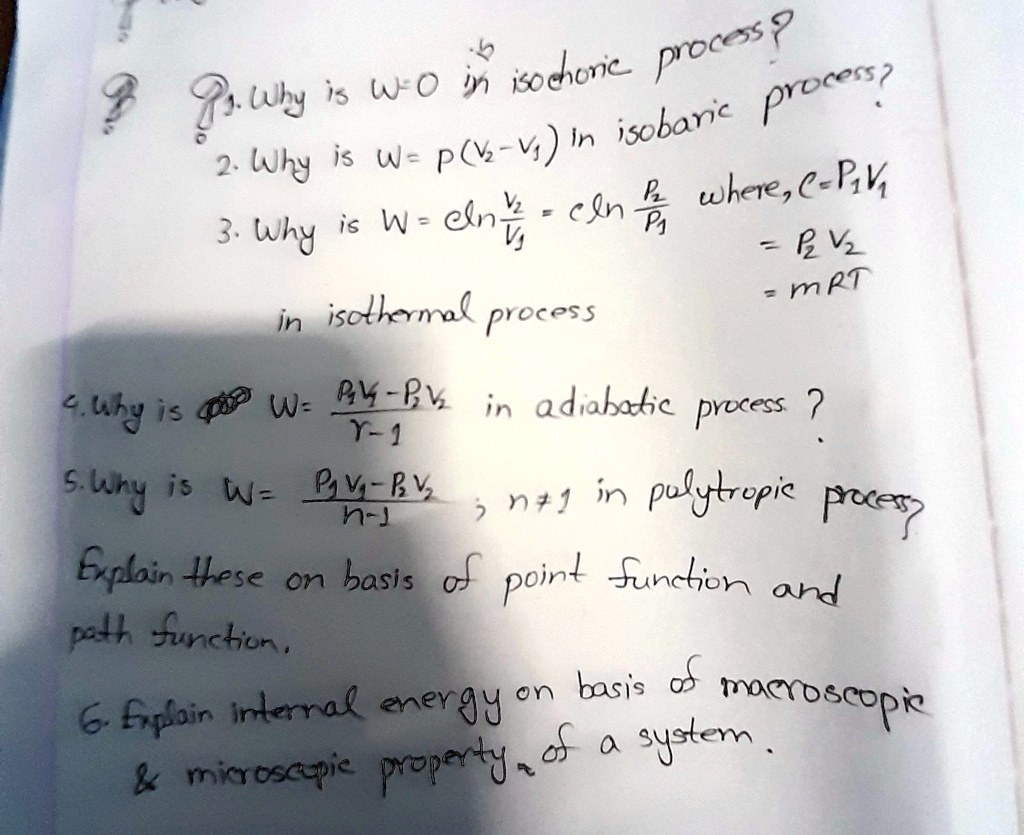 1. Why is W=0 in isochoric process?
2. Why is W= p(V₂-V₁) in isobaric process?
3. Why is W= cln V₂/V₁ = cln P₂/P₁ where, C=P₁V₁
= P₂ V₂
= mRT
in isothermal process
4. Why is W= P₁V₁-P₂V₂/γ-1 in adiabatic process ?
5. Why is W= P₁V₁-P₂V₂/n-1 ; n≠1 in polytropic process?
Explain these on basis of point function and
path function.
6. Explain internal energy on basis of macroscopic
& microscopic property of a system.